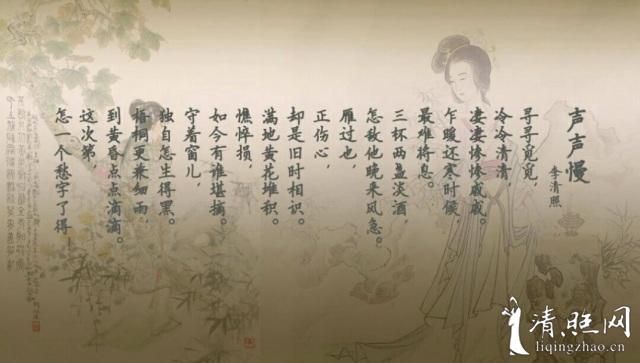 声声慢
李清照
寻寻觅觅，
冷冷清清，
凄凄惨惨戚戚。
乍暖还寒时候，
最难将息。
三杯两盏淡酒，
怎敌他晚来风急。
雁过也，
正伤心，
却是旧时相识。
满地黄花堆积。
憔悴损，
如今有谁堪摘。
守着窗儿，
独自怎生得黑。
梧桐更兼细雨，
到黄昏点点滴滴。
这次第，
怎一个愁字了得
清照网
liqingzhao.cn